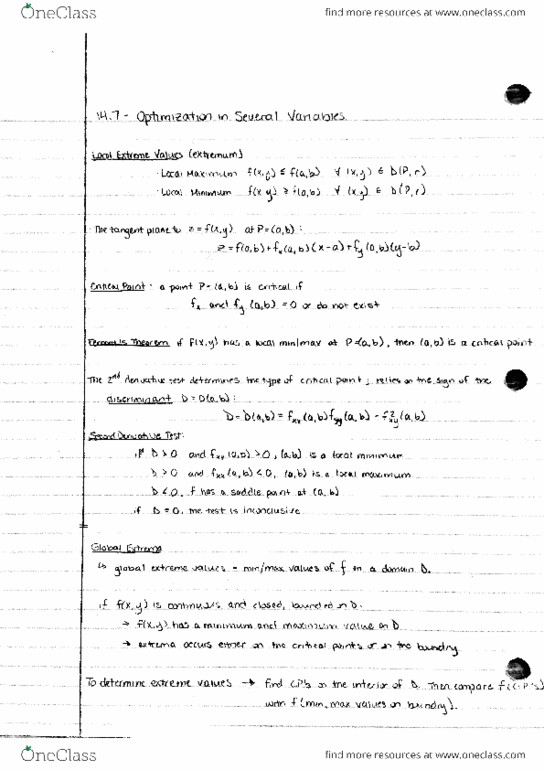 OneClass
find more resources at www.oneclass.com
14.7 - Optimization in Several Variables
Local Extreme Values (extremum)
· Local Maximum f(x,y) ≤ f(a,b) ∀ (x,y) ∈ D(P,r)
· Local Minimum f(x,y) ≥ f(a,b) ∀ (x,y) ∈ D(P,r)
· The tangent plane to z = f(x,y) at P=(a,b):
z = f(a,b) + fx(a,b)(x-a) + fy(a,b)(y-b)
Critical Point: a point P=(a,b) is critical if
fx and fy (a,b) = 0 or do not exist
Fermat's Theorem if f(x,y) has a local min/max at P=(a,b), then (a,b) is a critical point
The 2nd derivative test determines the type of critical point; relies on the sign of the
discriminant D=D(a,b):
D=D(a,b) = fxx(a,b)fyy(a,b) - f²xy(a,b)
Second Derivative Test:
if D>0 and fxx(a,b)>0, (a,b) is a local minimum
D>0 and fxx(a,b)<0, (a,b) is a local maximum
D<0, f has a saddle point at (a,b)
if D=0, the test is inconclusive
Global Extrema
↳ global extreme values - min/max values of f in a domain D.
if f(x,y) is continuous, and closed, bounded on D.
→ f(x,y) has a minimum and maximum value on D
→ extrema occurs either on the critical points or on the boundry
To determine extreme values → find C.P's on the interior of D. Then compare f(C.P's)
with f(min, max values on boundry).
OneClass
find more resources at www.oneclass.com